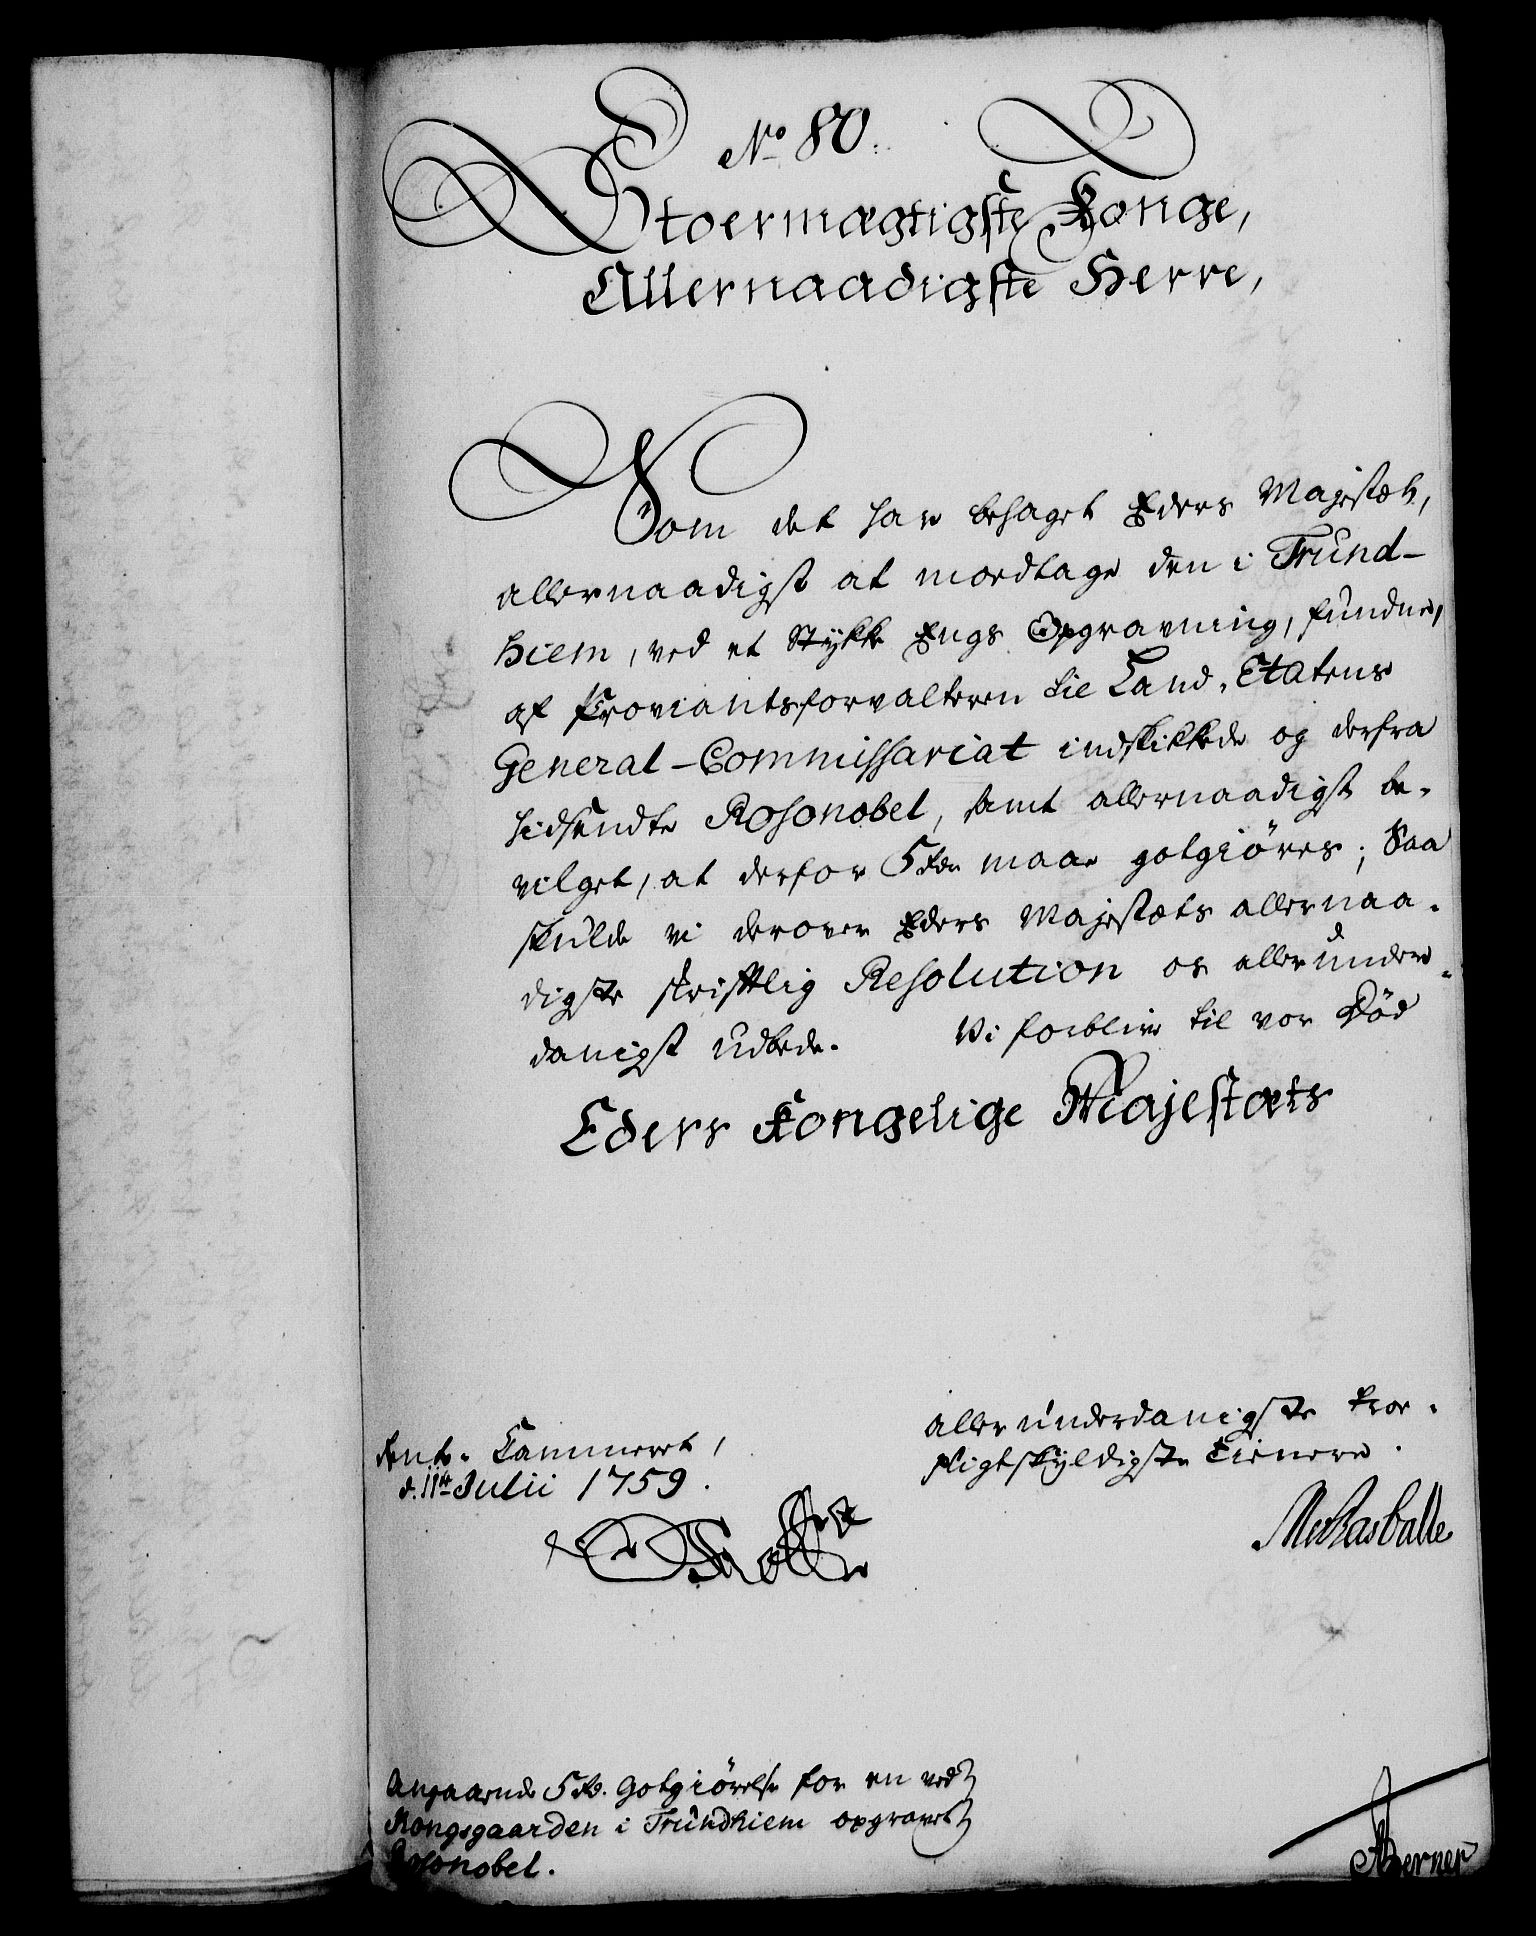 No 80.
Stoermægtigste Konge,
Allernaadigste Herre,
Som det har behaget Eders Majestæt,
allernaadigst at modtage den i Trund-
hiem, ved et Stykke Engs Opgravning, fundne,
af Proviantsforvalteren til Land-Etatens
General-Commissariat indskikkede og derfra
hidsendte Rosonobel, samt allernaadigst be-
vilget, at derfor 5 rdr maae gotgiøres; Saa
skulde vi derover Eders Majestæts allernaa-
digste skriftlig Resolution os allerunder-
danigst udbede. Vi forblive til vor Død
Eders Kongelige Majestæts
allerunderdanigste troe-
pligtskyldigste Tienere.
Rente-Cammeret,
d. 11te Julii 1759.
Angaaende 5 rd. Gotgiørelse for en ved
Kongsgaarden i Trundhiem opgravet
Rosonobel.
Berner